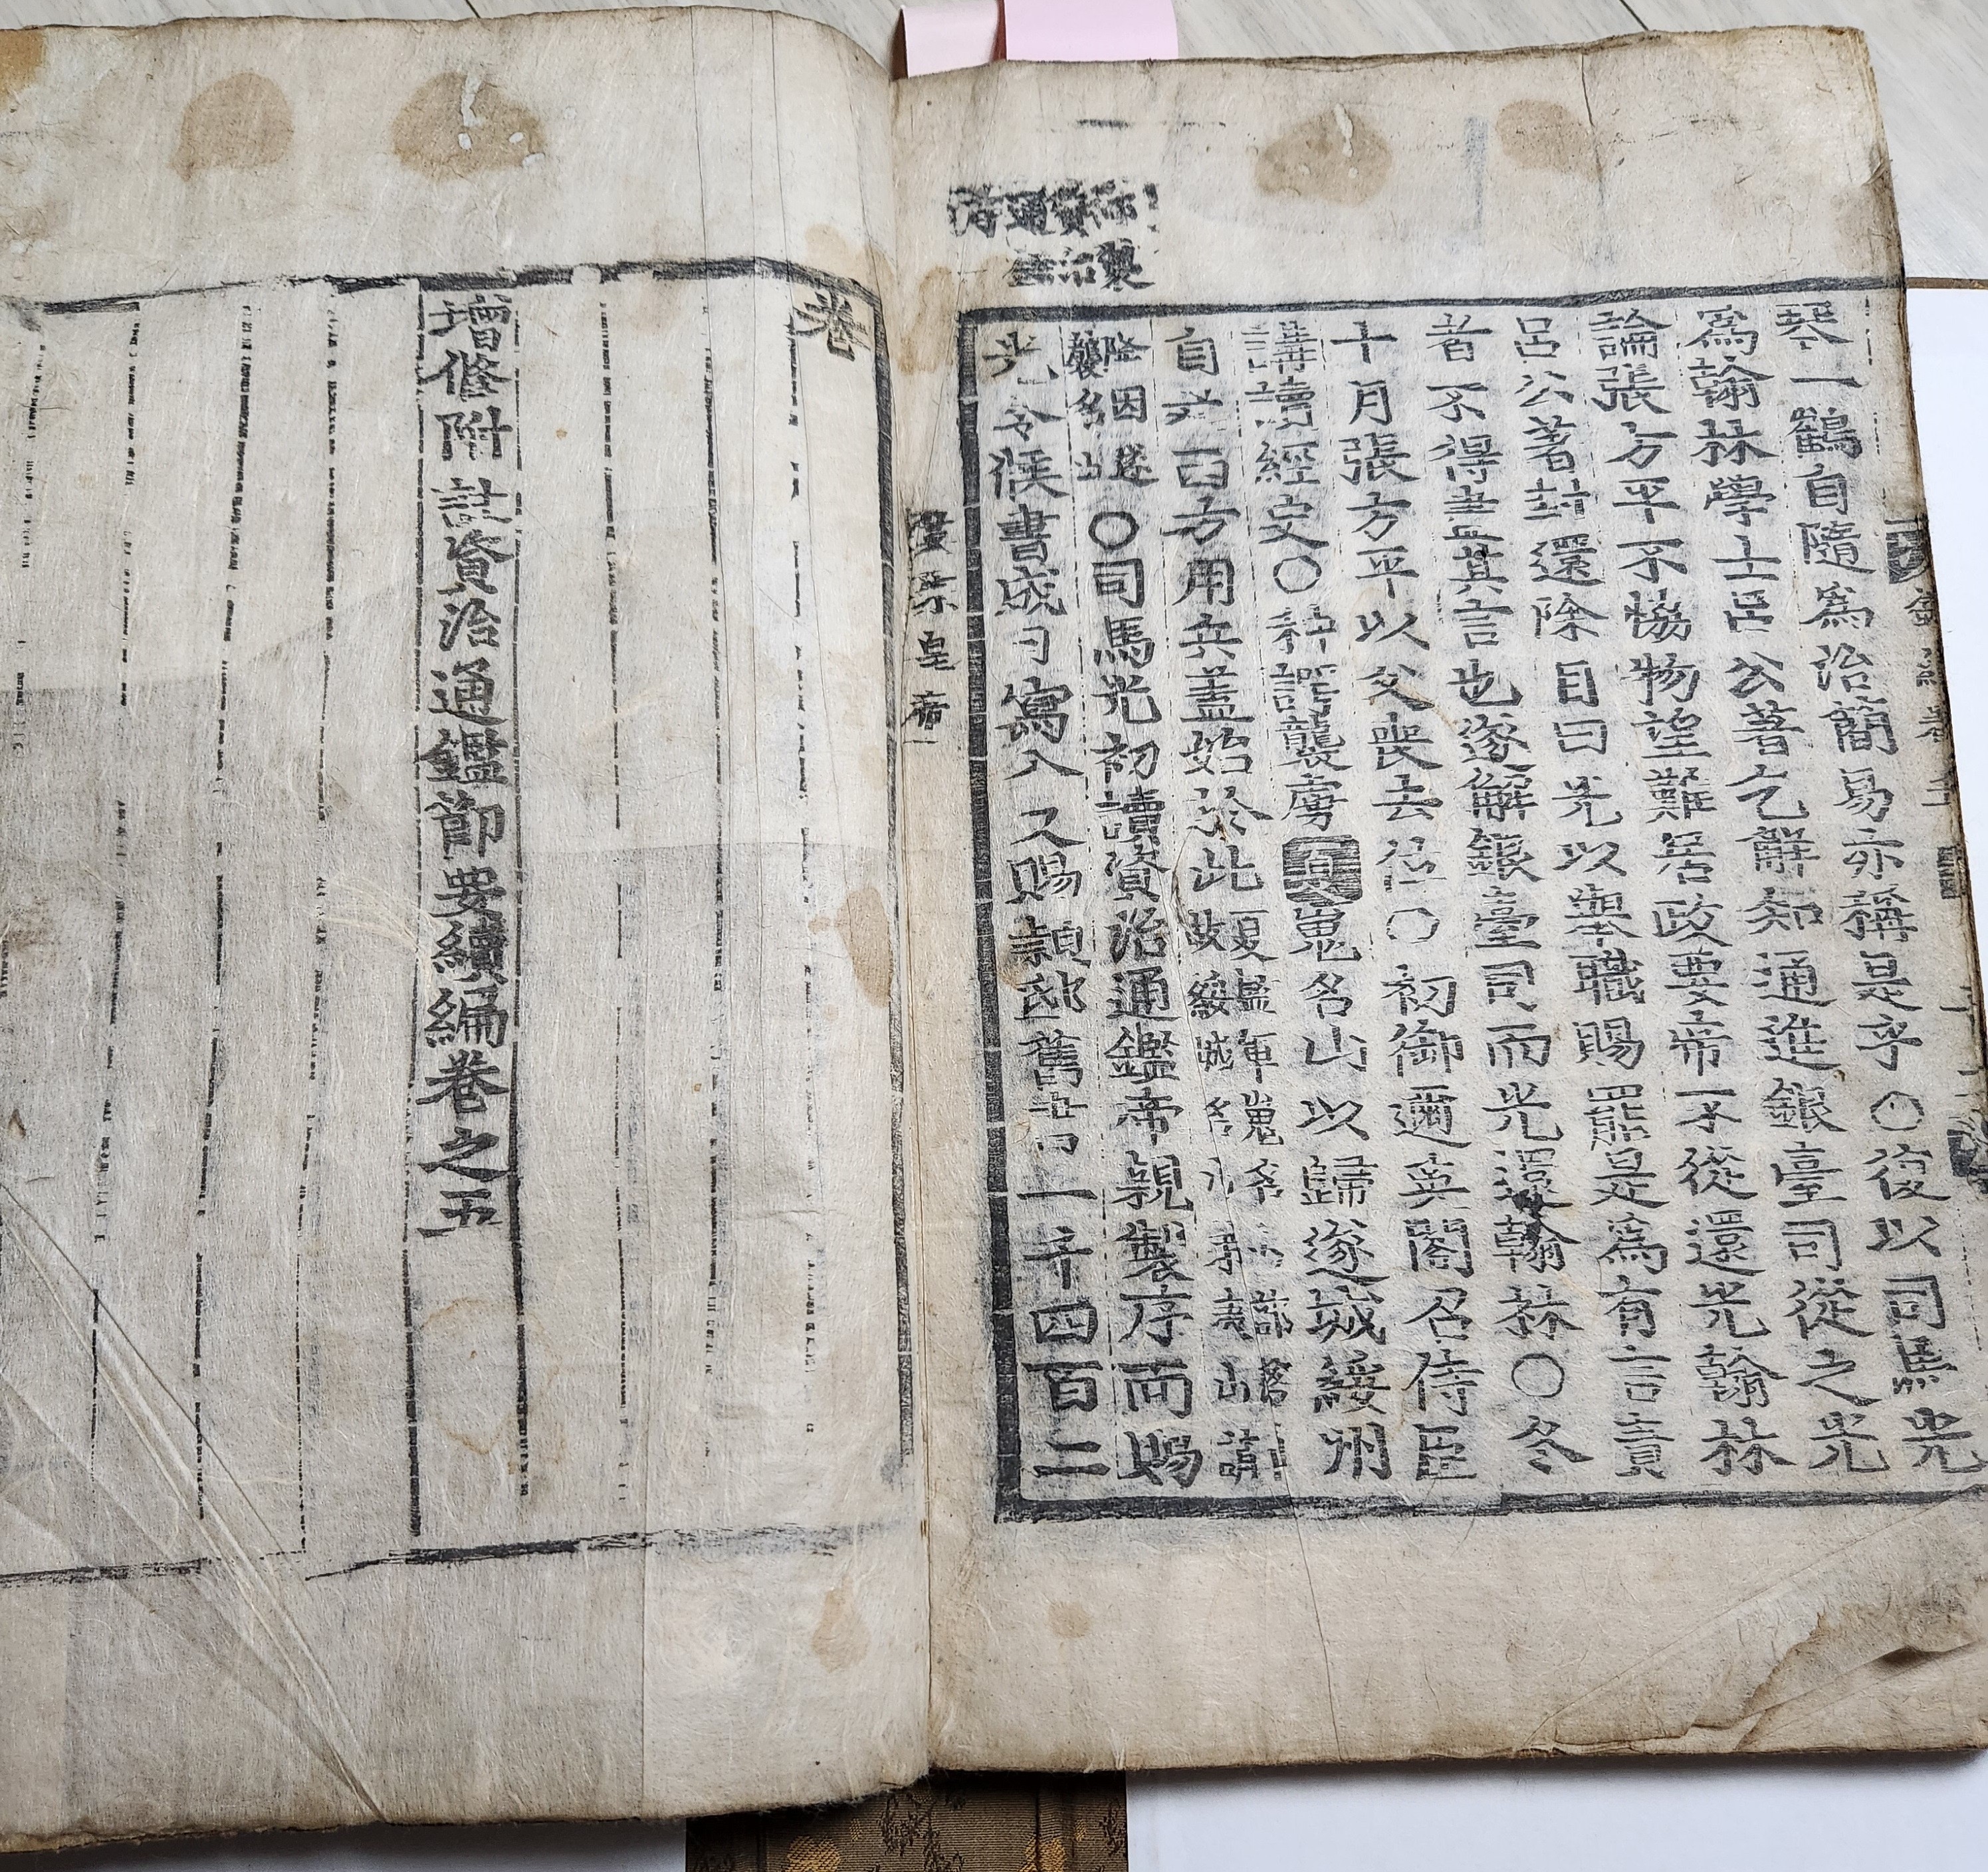 琴一鶴自隨爲治簡易亦稱是乎○復以司馬光
爲翰林學士呂公著乞解知通進銀臺司從之光
論張方平不恊物望難居政要帝不從還光翰林
呂公著封還除目曰光以擧職賜罷是爲有言責
者不得盡其言也遂解銀臺司而光還翰林○冬
十月張方平以父喪去位○初御邇英閣召侍臣
講讀經史○种諤襲虜嵬名山以歸遂城綏州
自是西方用兵蓋始於此
○司馬光初讀資治通鑑帝親製序而賜
光令候書成日寫入又賜穎邸舊書二千四百二
皇帝
卷
增修附註資治通鑑節要續編卷之五